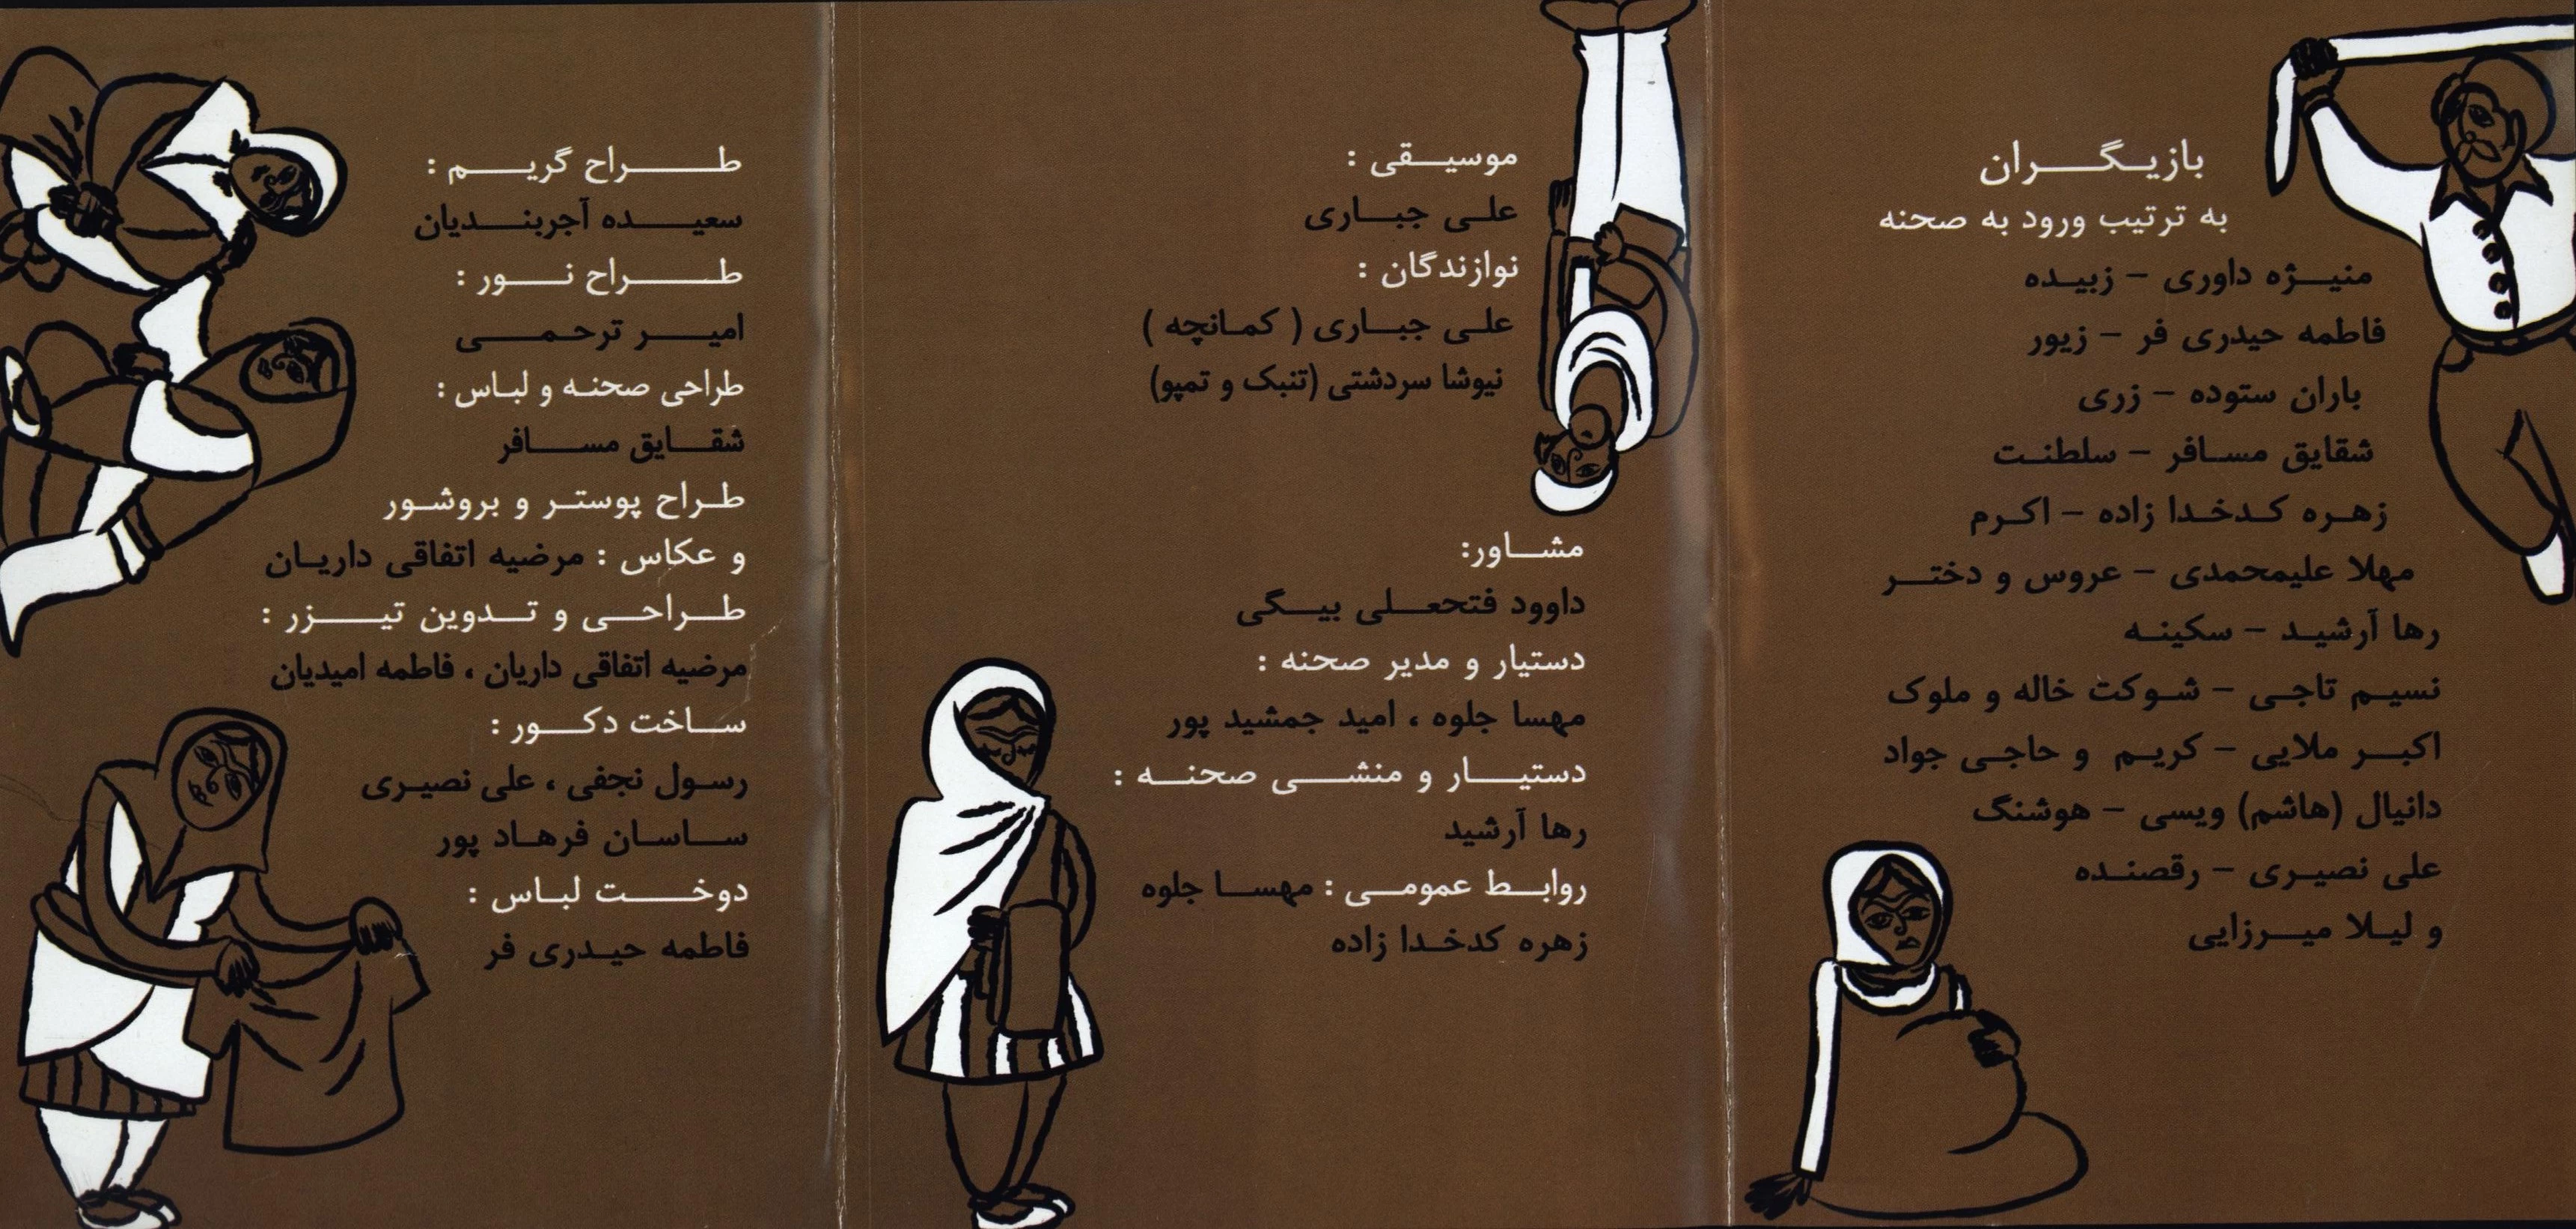 بازیگران
به ترتیب ورود به صحنه
منیژه داوری – زبیده
فاطمه حیدری فر – زیور
باران ستوده – زری
شقایق مسافر – سلطنت
زهره کدخدا زاده – اکرم
مهلا علیمحمدی – عروس و دختر
رها آرشید – سکینه
نسیم تاجی – شوکت خاله و ملوک
اکبر ملایی – کریم و حاجی جواد
دانیال (هاشم) ویسی – هوشنگ
علی نصیری – رقصنده
و لیلا میرزایی
موسیقی :
علی جباری
نوازندگان :
علی جباری ( کمانچه )
نیوشا سردشتی (تنبک و تمپو)
مشاور:
داوود فتحعلی بیگی
دستیار و مدیر صحنه :
مهسا جلوه ، امید جمشید پور
دستیار و منشی صحنه :
رها آرشید
روابط عمومی : مهسا جلوه
زهره کدخدا زاده
طراح گریم :
سعیده آجربندیان
طراح نور :
امیر ترحمی
طراحی صحنه و لباس :
شقایق مسافر
طراح پوستر و بروشور
و عکاس : مرضیه اتفاقی داریان
طراحی و تدوین تیزر :
مرضیه اتفاقی داریان ، فاطمه امیدیان
ساخت دکور :
رسول نجفی ، علی نصیری
ساسان فرهاد پور
دوخت لباس :
فاطمه حیدری فر